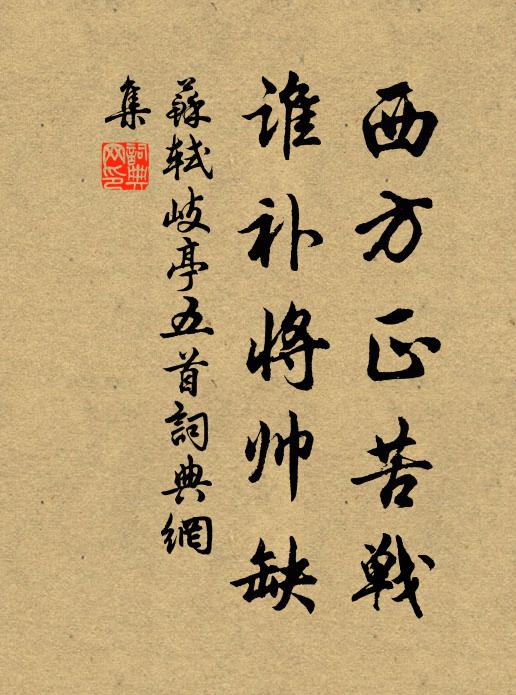 西方正苦戰
谁补将帅缺
蘇軾岐亭五首詞典網
集
詞典網印